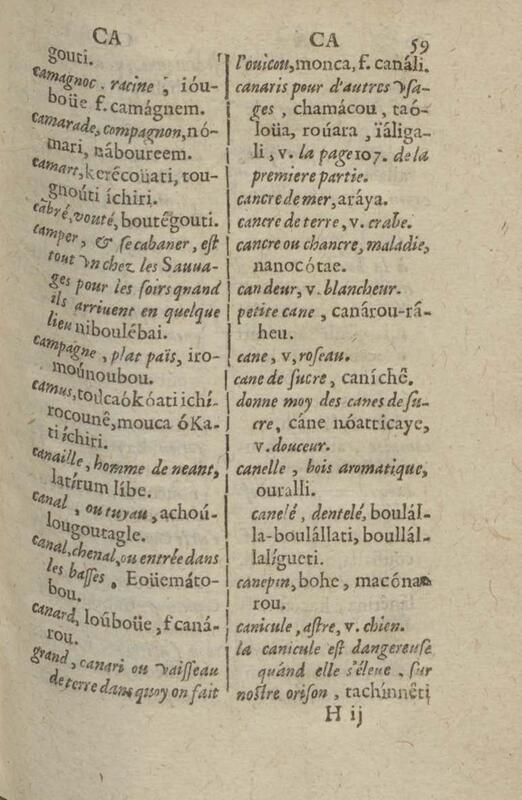 CA
gouti.
camagnoc. racine, ióu-
boüe f. camágnem.
camarade, compagnon, nó-
mari, náboureem.
camart, kerécoüati, tou-
gnoúti íchiri.
cabré, vouté, boutêgouti.
camper, & se cabaner, est
tout vn chez les Sauua-
ges pour les soirs quand
ils arriuent en quelque
lieu niboulébai.
campagne, plat païs, iro-
moúnoubou.
camus, toucaókóati ichí-
rocounê, mouca óKa-
ti ichiri.
canaille, homme de neant,
latírum líbe.
canal, ou tuyau, achoú-
lougoutagle.
canal, chenal, ou entrée dans
les basses, Eoüemáto-
bou.
canard, loúboüe, f caná-
rou.
grand, canari ou vaisseau
de terre dans quoy on fait
CA 59
l'ouicou, monca, f. canáli.
canaris pour d'autres vsa-
ges, chamácou, taó-
loüa, roúara, ïáliga-
li, v. la page 107. de la
premiere partie.
cancre de mer, aráya.
cancre de terre, v. crabe.
cancre ou chancre, maladie,
nanocótae.
candeur, v. blancheur.
petite cane, canárou-râ-
heu.
cane, v, roseau.
cane de sucre, caníchê.
donne moy des canes de su-
cre, cáne nóatticaye,
v. douceur.
canelle, bois aromatique,
ouralli.
canelé, dentelé, boulál-
la-boulállati, boullál-
lalígueti.
canepin, bohe, macóna-
rou.
canicule, astre, v. chien.
la canicule est dangereuse
quánd elle s'éleue, sur
nostre orison, tachínnêti
H ij